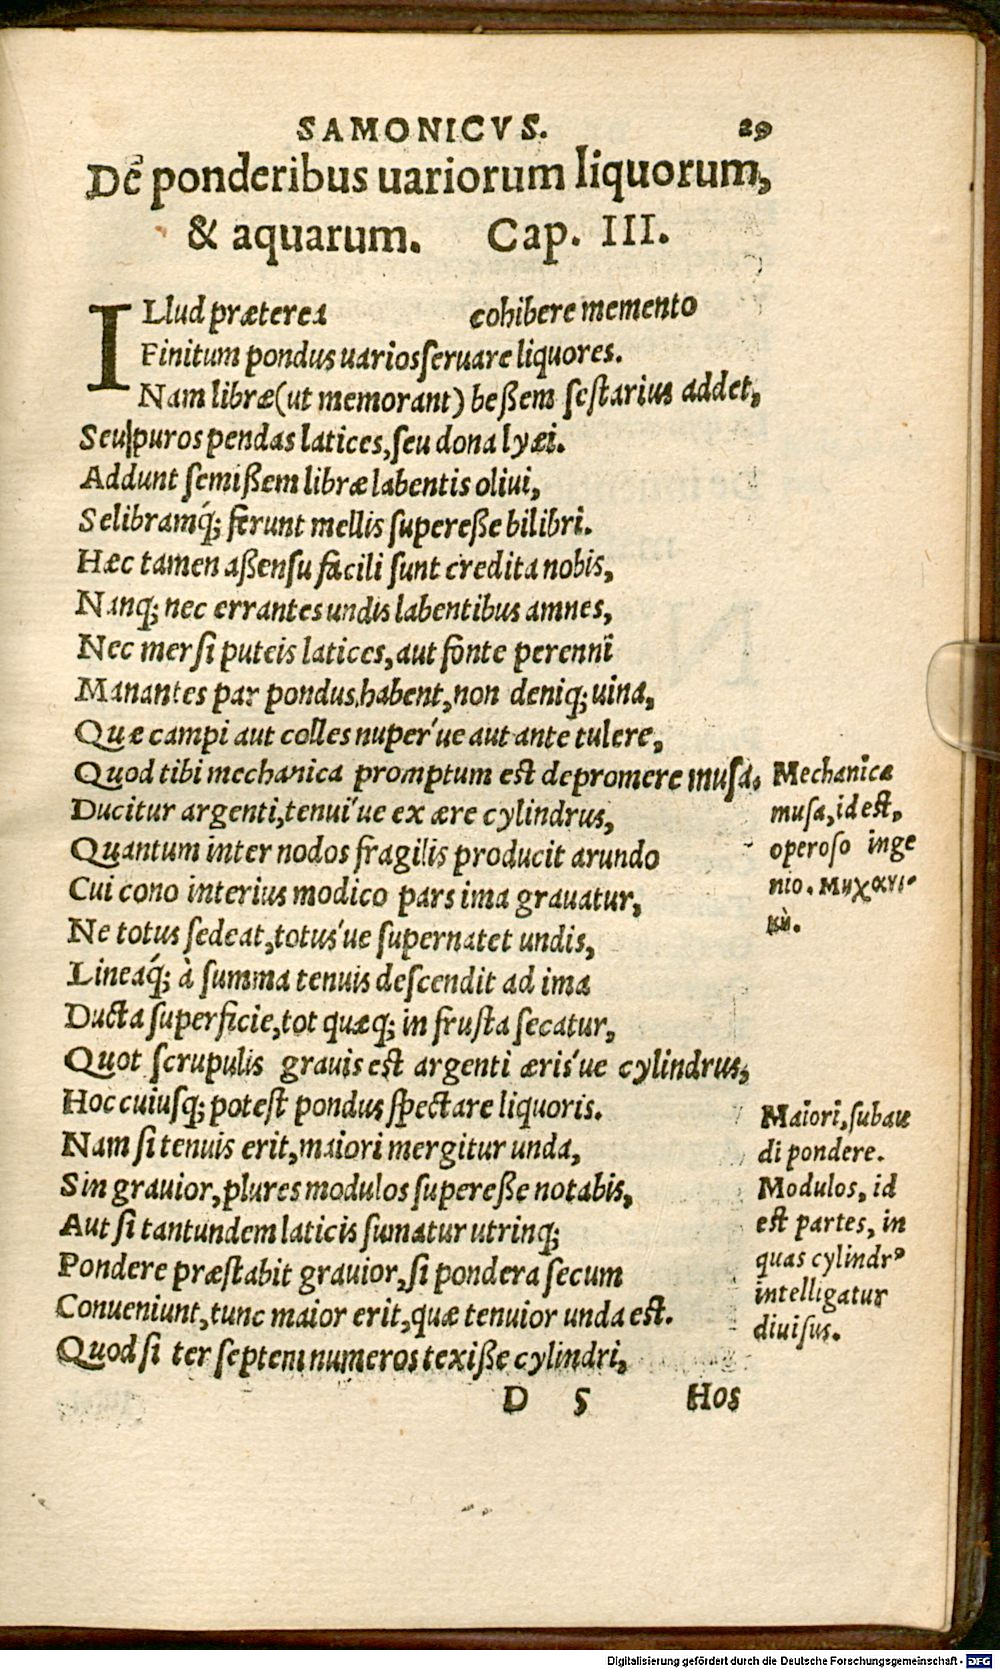 SAMONICVS. 29
De ponderibus uariorum liquorum,
& aquarum. Cap. III.
ILlud præterea cohibere memento
Finitum pondus uarios ſeruare liquores.
Nam libræ(ut memorant) beßem ſeſtarius addet,
Seu puros pendas latices, ſeu dona lyæi.
Addunt ſemißem libræ labentis oliui,
Selibramq́; ferunt mellis ſupereße bilibri.
Hæc tamen aßenſu facili ſunt credita nobis,
Nanq; nec errantes undis labentibus amnes,
Nec merſi puteis latices, aut fonte perenni
Manantes par pondus habent, non deniq; uina,
Quæ campi aut colles nuper'ue aut ante tulere,
Quod tibi mechanica promptum est depromere muſa.
Ducitur argenti, tenui'ue ex ære cylindrus,
Quantum inter nodos fragilis producit arundo
Cui cono interius modico pars ima grauatur,
Ne totus ſedeat, totus'ue ſupernatet undis,
Lineaq́; à ſumma tenuis deſcendit ad ima
Ducta ſuperficie, tot quæq; in fruſta ſecatur,
Quot ſcrupulis grauis est argenti æris'ue cylindrus,
Hoc cuiuſq; potest pondus ſpectare liquoris.
Nam ſi tenuis erit, maiori mergitur unda,
Sin grauior, plures modulos ſupereße notabis,
Aut ſi tantundem laticis ſumatur utrinq;
Pondere præstabit grauior, ſi pondera ſecum
Conueniunt, tunc maior erit, quæ tenuior unda est.
Quod ſi ter ſeptem numeros texiße cylindri,
D 5 Hos
Mechanica
muſa, id est,
operoſo inge
nio. Μηχανι-
κὴ.
Maiori, ſubau
di pondere.
Modulos, id
est partes, in
quas cylindrꝰ
intelligatur
diuiſus.
Digitalisierung gefördert durch die Deutsche Forschungsgemeinschaft - DFG